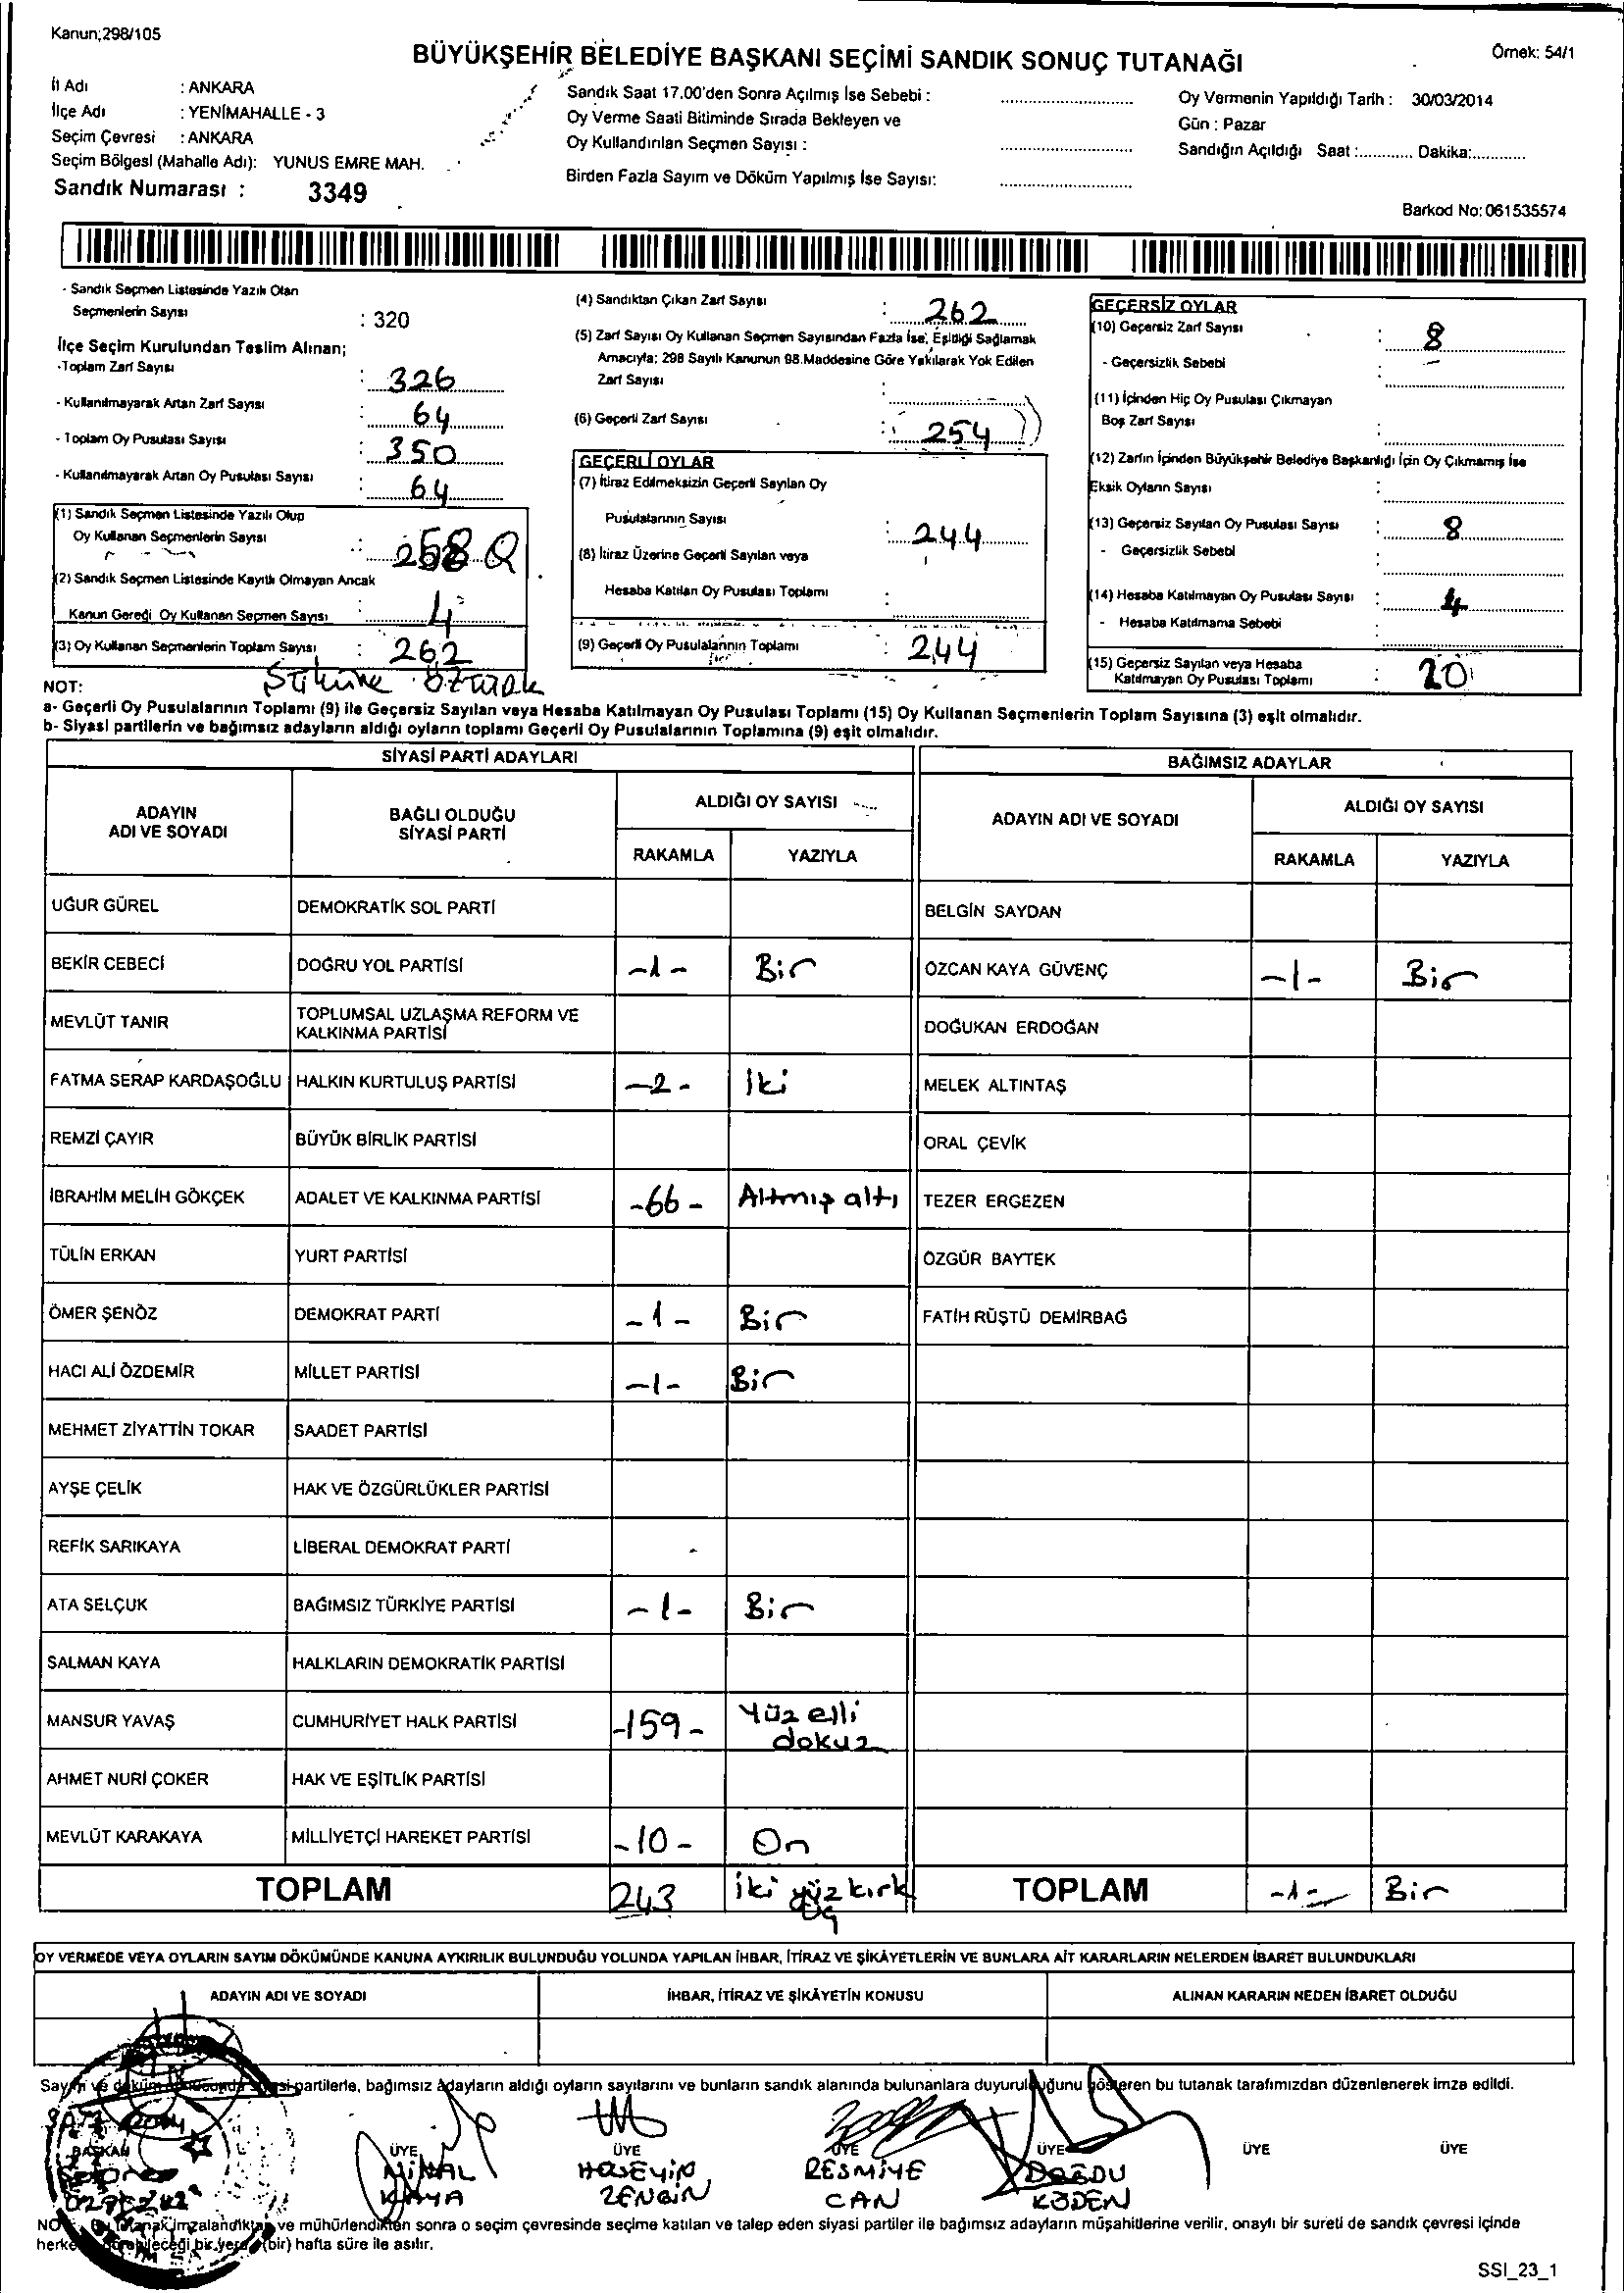 Kanun;298/105
BÜYÜKŞEHİR BELEDİYE BAŞKANI SEÇİMİ SANDIK SONUÇ TUTANAĞI
Örnek: 54/1
İl Adı : ANKARA
İlçe Adı : YENİMAHALLE - 3
Seçim Çevresi : ANKARA
Seçim Bölgesi (Mahalle Adı): YUNUS EMRE MAH.
Sandık Numarası : 3349
Sandık Saat 17.00'den Sonra Açılmış İse Sebebi :
Oy Verme Saati Bitiminde Sırada Bekleyen ve
Oy Kullandırılan Seçmen Sayısı :
Birden Fazla Sayım ve Döküm Yapılmış İse Sayısı:
Oy Vermenin Yapıldığı Tarih : 30/03/2014
Gün : Pazar
Sandığın Açıldığı Saat :............ Dakika:............
Barkod No: 061535574
- Sandık Seçmen Listesinde Yazılı Olan
Seçmenlerin Sayısı : 320
İlçe Seçim Kurulundan Teslim Alınan;
-Toplam Zarf Sayısı : 326
- Kullanılmayarak Artan Zarf Sayısı : 64
- Toplam Oy Pusulası Sayısı : 350
- Kullanılmayarak Artan Oy Pusulası Sayısı : 64
(1) Sandık Seçmen Listesinde Yazılı Olup
Oy Kullanan Seçmenlerin Sayısı : 258
(2) Sandık Seçmen Listesinde Kayıtlı Olmayan Ancak
Kanun Gereği Oy Kullanan Seçmen Sayısı : 4
(3) Oy Kullanan Seçmenlerin Toplam Sayısı : 262
(4) Sandıktan Çıkan Zarf Sayısı : 262
(5) Zarf Sayısı Oy Kullanan Seçmen Sayısından Fazla İse, Eşitliği Sağlamak
Amacıyla; 298 Sayılı Kanunun 98.Maddesine Göre Yakılarak Yok Edilen
Zarf Sayısı :
(6) Geçerli Zarf Sayısı : 254
GEÇERLİ OYLAR
(7) İtiraz Edilmeksizin Geçerli Sayılan Oy
Pusulalarının Sayısı : 244
(8) İtiraz Üzerine Geçerli Sayılan veya
Hesaba Katılan Oy Pusulası Toplamı :
(9) Geçerli Oy Pusulalarının Toplamı : 244
GEÇERSİZ OYLAR
(10) Geçersiz Zarf Sayısı : 8
- Geçersizlik Sebebi : -
(11) İçinden Hiç Oy Pusulası Çıkmayan
Boş Zarf Sayısı :
(12) Zarfın İçinden Büyükşehir Belediye Başkanlığı İçin Oy Çıkmamış İse
Eksik Oyların Sayısı :
(13) Geçersiz Sayılan Oy Pusulası Sayısı : 8
- Geçersizlik Sebebi :
(14) Hesaba Katılmayan Oy Pusulası Sayısı : 4
- Hesaba Katılmama Sebebi :
(15) Geçersiz Sayılan veya Hesaba
Katılmayan Oy Pusulası Toplamı : 20
NOT:
a- Geçerli Oy Pusulalarının Toplamı (9) ile Geçersiz Sayılan veya Hesaba Katılmayan Oy Pusulası Toplamı (15) Oy Kullanan Seçmenlerin Toplam Sayısına (3) eşit olmalıdır.
b- Siyasi partilerin ve bağımsız adayların aldığı oyların toplamı Geçerli Oy Pusulalarının Toplamına (9) eşit olmalıdır.
SİYASİ PARTİ ADAYLARI
BAĞIMSIZ ADAYLAR
ADAYIN ADI VE SOYADI
BAĞLI OLDUĞU SİYASİ PARTİ
ALDIĞI OY SAYISI
RAKAMLA YAZIYLA
ADAYIN ADI VE SOYADI
ALDIĞI OY SAYISI
RAKAMLA YAZIYLA
UĞUR GÜREL DEMOKRATİK SOL PARTİ BELGİN SAYDAN
BEKİR CEBECİ DOĞRU YOL PARTİSİ -1- Bir ÖZCAN KAYA GÜVENÇ -1- Bir
MEVLÜT TANIR TOPLUMSAL UZLAŞMA REFORM VE KALKINMA PARTİSİ DOĞUKAN ERDOĞAN
FATMA SERAP KARDAŞOĞLU HALKIN KURTULUŞ PARTİSİ -2- İki MELEK ALTINTAŞ
REMZİ ÇAYIR BÜYÜK BİRLİK PARTİSİ ORAL ÇEVİK
İBRAHİM MELİH GÖKÇEK ADALET VE KALKINMA PARTİSİ -66- Altmış altı TEZER ERGEZEN
TÜLİN ERKAN YURT PARTİSİ ÖZGÜR BAYTEK
ÖMER ŞENÖZ DEMOKRAT PARTİ -1- Bir FATİH RÜŞTÜ DEMİRBAĞ
HACI ALİ ÖZDEMİR MİLLET PARTİSİ -1- Bir
MEHMET ZİYATTİN TOKAR SAADET PARTİSİ
AYŞE ÇELİK HAK VE ÖZGÜRLÜKLER PARTİSİ
REFİK SARIKAYA LİBERAL DEMOKRAT PARTİ
ATA SELÇUK BAĞIMSIZ TÜRKİYE PARTİSİ -1- Bir
SALMAN KAYA HALKLARIN DEMOKRATİK PARTİSİ
MANSUR YAVAŞ CUMHURİYET HALK PARTİSİ -159- Yüz elli dokuz
AHMET NURİ ÇOKER HAK VE EŞİTLİK PARTİSİ
MEVLÜT KARAKAYA MİLLİYETÇİ HAREKET PARTİSİ -10- On
TOPLAM 243 İki yüz kırk üç TOPLAM -1- Bir
OY VERMEDE VEYA OYLARIN SAYIM DÖKÜMÜNDE KANUNA AYKIRILIK BULUNDUĞU YOLUNDA YAPILAN İHBAR, İTİRAZ VE ŞİKÂYETLERİN VE BUNLARA AİT KARARLARIN NELERDEN İBARET BULUNDUKLARI
ADAYIN ADI VE SOYADI İHBAR, İTİRAZ VE ŞİKÂYETİN KONUSU ALINAN KARARIN NEDEN İBARET OLDUĞU
Sayım ve döküm partilerle, bağımsız adayların aldığı oyların sayılarını ve bunların sandık alanında bulunanlara duyurulduğunu gösteren bu tutanak tarafımızdan düzenlenerek imza edildi.
BAŞKAN ÜYE ÜYE ÜYE ÜYE ÜYE ÜYE
KAYA
HÜSEYİN ZENGİN
RESMİYE CAN
NOT: Bu tutanak imzalandıktan ve mühürlendikten sonra o seçim çevresinde seçime katılan ve talep eden siyasi partiler ile bağımsız adayların müşahitlerine verilir, onaylı bir sureti de sandık çevresi içinde
herkesin görebileceği bir yere (bir) hafta süre ile asılır.
SSI_23_1